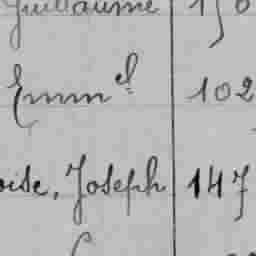 Guillaume 156
Emm.el 102
oise, Joseph 147